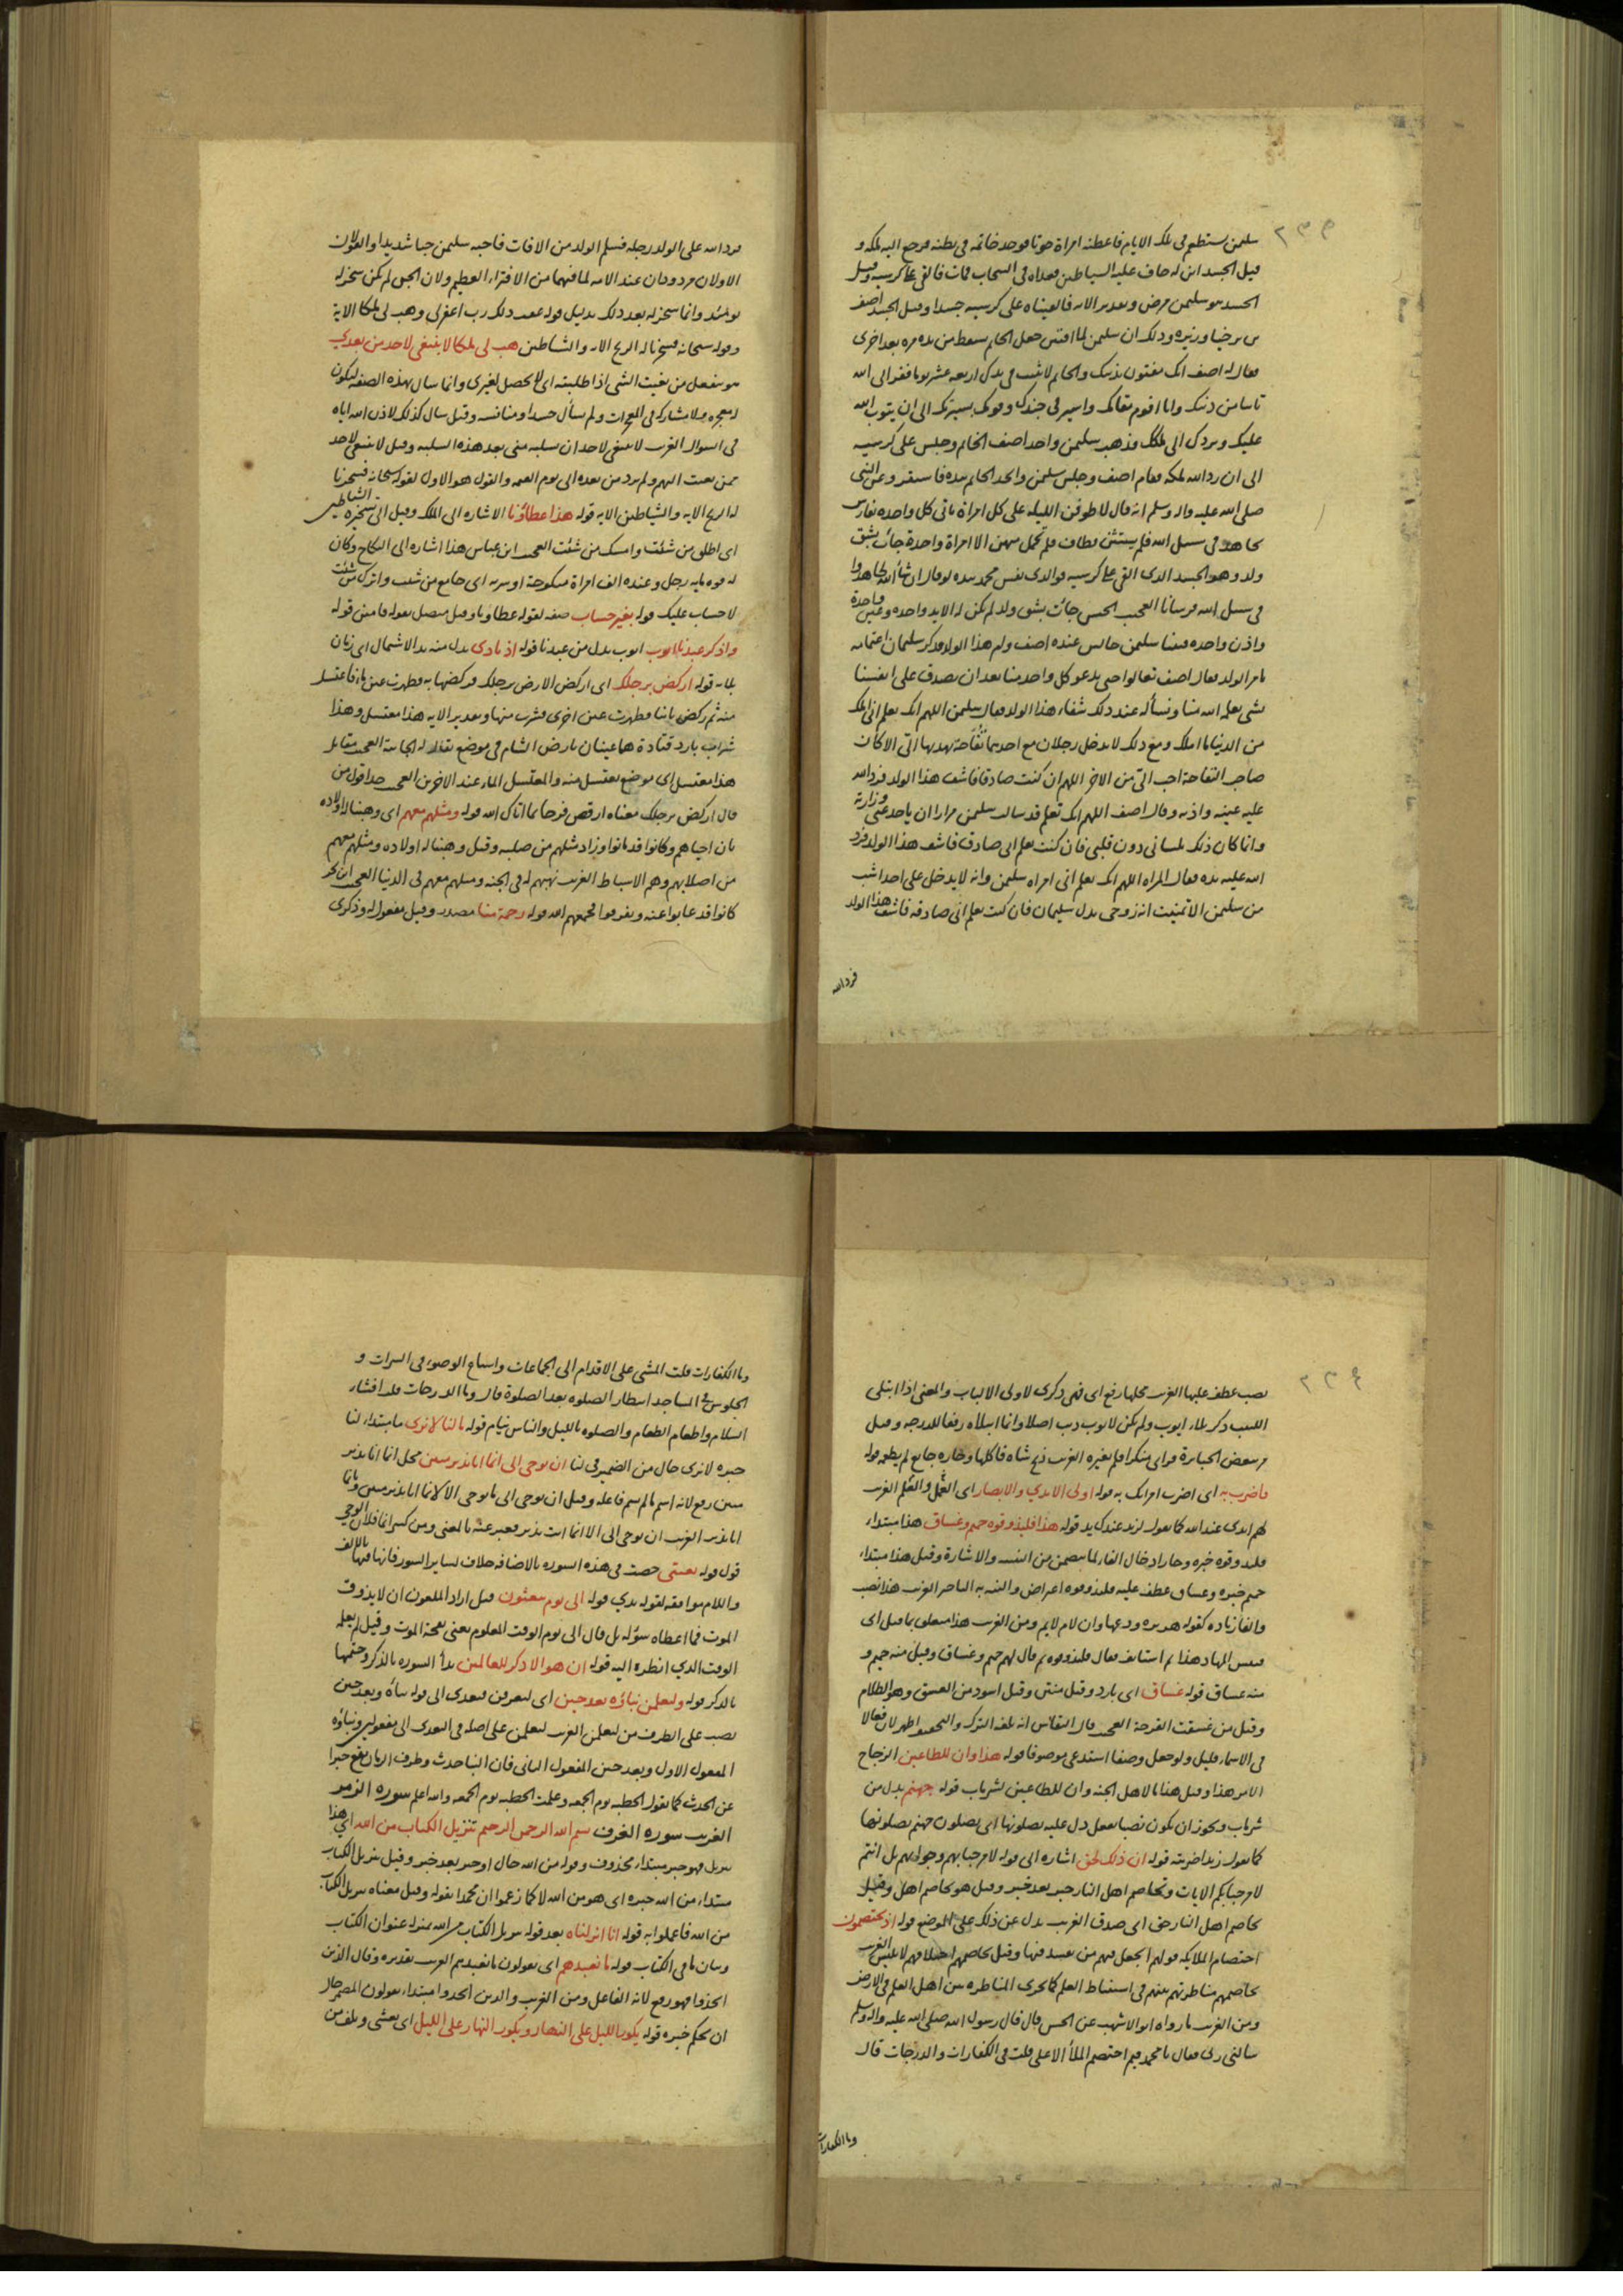 سليمن يستطعم في تلك الايام فاعطته امراة حوتا فوجد خاتمه في بطنه فرجع اليه ملكه و
قيل الجسد ابن له خاف عليه الشياطين فغداه في السحاب فمات فالقي على كرسيه وقيل
الجسد هو سليمن مرض وتقدير الايه فالقيناه على كرسيه جسدا وقيل الجسد اصف
بن برخيا وزيره وذلك ان سليمن لما افتتن جعل الخاتم يسقط من يده مره بعد اخرى
فقال له اصف انك مفتون بذنبك والخاتم لا يثبت في يدك اربعة عشر يوما ففر الى الله
تائبا من ذنبك وانا اقوم مقامك واسير في جندك وقومك بسيرتك الى ان يتوب الله
عليك ويردك الى ملكك فذهب سليمن واخذ اصف الخاتم وجلس على كرسيه
الى ان رد الله ملكه فقام اصف وجلس سليمن واخذ الخاتم بيده فاستقر وعن النبى
صلى الله عليه واله وسلم انه قال لاطوفن الليله على كل امراة ياتى كل واحده بفارس
يجاهد في سبيل الله فلم يستثن فطاف فلم تحمل منهن الا امراة واحدة جاءت بشق
ولد وهو الجسد الذى القى على كرسيه فوالذى نفس محمد بيده لو قال ان شا الله لجاهدوا
في سبيل الله فرسانا العجيب الحسن جاءت بشق ولد لم يكن له الا يد واحده وعين واحدة
واذن واحده فبينا سليمن جالس عنده اصف وام هذا الولد فذكر سليمان اغتمامه
بامر الولد فقال اصف تعالوا حتى يدعو كل واحد منا بعد ان يصدق على انفسنا
بشى يعلمه الله منا ونسأله عند ذلك شفاء هذا الولد فقال سليمن اللهم انك تعلم انى املك
من الدنيا ما املك ومع ذلك لا يدخل رجلان مع احدهما تفاحة يهديها الى الا كان
صاحب التفاحة احب الى من الاخر اللهم ان كنت صادقا فاشف هذا الولد فرد الله
عليه عينه واذنه وقال اصف اللهم انك تعلم قد سالت سليمن مرارا ان ياخذ عنى وزارته
وانما كان ذلك بلسانى دون قلبى فان كنت تعلم انى صادق فاشف هذا الولد فرد
الله عليه يده فقالت المراه اللهم انك تعلم انى امراه سليمن وانه لا يدخل على احد اشب
من سليمن الا تمنيت انه زوجى بدل سليمان فان كنت تعلم انى صادقه فاشف هذا الولد
فرد الله
فرد الله على الولد رجله فسلم الولد من الافات فاحبه سليمن حبا شديدا والقولان
الاولان مردودان عند الائمه لما فيهما من الافتراء العظيم ولان الجن لم يكن سخر له
يومئذ وانما سخر له بعد ذلك بدليل قوله عقيب ذلك رب اغفر لى وهب لى ملكا الاية
وقوله سبحانه فسخرنا له الريح الايه والشياطين هب لى ملكا لا ينبغى لاحد من بعدي
هو ينفعل من بغيت الشى اذا طلبته اى لا يحصل لغيرى وانما سال بهذه الصفة ليكون
له معجزه فلا يشارك في المعجزات ولم يسأل حسدا ومنافسه وقيل سال كذلك لاذن الله اياه
في السوال الغريب لا ينبغى لاحد ان يسلبه منى بعد هذه السلبه وقيل لا ينبغى لاحد
ممن بعثت اليهم ولم يرد من بعده الى يوم القيمه والقول هو الاول لقوله سبحانه فسخرنا
له الريح الايه والشياطين الايه قوله هذا عطاؤنا الاشاره الى الملك وقيل الى تسخيره الشياطين
اى اطلق من شئت وامسك من شئت العجيب ابن عباس هذا اشاره الى النكاح وكان
له قوه مايه رجل وعنده الف امراة منكوحة او سريه اى جامع من شئت واترك من شئت
لا حساب عليك قوله بغير حساب صفه لقوله عطاونا وقيل متصل بقوله فامنن قوله
واذكر عبدنا ايوب ايوب بدل من عبدنا قوله اذ نادى بدل منه بدل الاشتمال اى زمان
بلائه قوله اركض برجلك اى اركض الارض برجلك فركضها به فظهرت عين ماء فاغتسل
منه ثم ركض ثانيا فظهرت عين اخرى فشرب منها وتقدير الايه هذا مغتسل وهذا
شراب بارد قتادة هما عينان بارض الشام في موضع يقال له الجابية العجيب مقاتل
هذا مغتسل اى موضع يغتسل منه والمغتسل الماء عند الاخرين العجيب جدا قول من
قال اركض برجلك معناه ارقص فرحا بما اتاك الله قوله ومثلهم معهم اى وهبنا له اولاده
بان احياهم وكانوا قد ماتوا وزاد مثلهم من صلبه وقيل وهبنا له اولاده ومثلهم معهم
من اصلابهم وهم الاسباط الغريب نهبهم له في الجنه ومثلهم معهم في الدنيا العجيب ابن بحر
كانوا قد غابوا عنه وتفرقوا فجمعهم الله قوله رحمة منا مصدر وقيل مفعول له وذكرى
نصب عطف عليها الغريب محلها رفع اى فهى ذكرى لاولى الالباب والمعنى اذا ابتلى
اللبيب ذكر بلاء ايوب ولم يكن لايوب ذنب اصلا وانما ابتلاه رفعا للدرجه وقيل
مر ببعض الجبابرة فراى منكرا فلم يغيره الغريب ذبح شاه فاكلها وجاره جايع لم يطعمه قوله
فاضرب به اى اضرب امراتك به قوله اولى الايدي والابصار اى العمل والعلم الغريب
لهم ايدى عند الله كما تقول لزيد عندك يد قوله هذا فليذوقوه حميم وغساق هذا مبتداء
فليذوقوه خبره وجاز ادخال الفا لما يتضمن من التنبيه والاشارة وقيل هذا مبتداء
حميم خبره وغساق عطف عليه فليذوقوه اعتراض الغريب هذا نصب
والفا زياده كقوله
فبئس المهاد هذا ثم استانف فقال فليذوقوه ثم قال لهم حميم وغساق وقيل منه حميم و
منه غساق قوله غساق اى بارد وقيل منتن وقيل اسود من الغسق وهو الظلام
وقيل من غسقت القرحة العجيب قال النقاش انه بلغه الترك والتخفيف اظهر لان فعالا
في الاسماء قليل ولو جعل وصفا استدعى موصوفا قوله هذا وان للطاغين الزجاج
الامر هذا وقيل هذا لاهل الجنه وان للطاغين لشر ماب قوله جهنم بدل من
شر ماب ويجوز ان يكون نصبا بفعل دل عليه يصلونها اى يصلون جهنم يصلونها
كما تقول زيدا ضربته قوله ان ذلك لحق اشاره الى قوله لا مرحبا بهم وجوابهم بل انتم
لا مرحبا بكم الايات وتخاصم اهل النار خبر بعد خبر وقيل هو تخاصم اهل وقيل
تخاصم اهل النار حق اى صدق الغريب بدل عن ذلك على الموضع قوله اذ يختصمون
اختصام الملايكه قولهم اتجعل فيهم من يفسد فيها وقيل تخاصمهم اختلافهم الغريب
تخاصمهم مناظرتهم بينهم في استنباط العلم كما تجرى المناظره بين اهل العلم في الارض
ومن الغريب ما رواه ابو الاشهب عن الحسن قال قال رسول الله صلى الله عليه واله وسلم
سالنى ربى فقال يا محمد فيم اختصم الملأ الاعلى قلت في الكفارات والدرجات قال
وما الكفارات
وما الكفارات قلت المشى على الاقدام الى الجماعات واسباغ الوضوء في السبرات و
الجلوس في المساجد انتظار الصلوه بعد الصلوة قال وما الدرجات قلت افشاء
السلام واطعام الطعام والصلوه بالليل والناس نيام قوله مالنا لا نرى ما مبتداء لنا
خبره لا نرى حال من الضمير في لنا ان يوحى الى انما انا نذير مبين محل انما انا نذير
مبين رفع لانه اسم ما لم يسم فاعله وقيل ان يوحى الى ما يوحى الا لانما انا نذير مبين وانما
انا نذير الغريب ان يوحى الى الا انما انت نذير فعبر عنه بالمعنى ومن كسر انما فلان الوحي
قول قوله لعنتى خصت في هذه السوره بالاضافه خلاف لساير السور فانها فيها بالالف
واللام موافقه لقوله بيدي قوله الى يوم يبعثون قيل اراد الملعون ان لا يذوق
الموت فما اعطاه سؤله بل قال الى يوم الوقت المعلوم يعنى نفخة الموت وقيل لم يعلمه
الوقت الذي انظره اليه قوله ان هو الا ذكر للعالمين بدأ السوره بالذكر وختمها
بالذكر قوله ولتعلمن نباؤه بعد حين اى لتعرفن فتعدى الى قوله نبأه وبعد حين
نصب على الظرف من لتعلمن الغريب لتعلمن على اصله في التعدى الى مفعولين ونباؤه
المفعول الاول وبعد حين المفعول الثانى فان النبا حدث وظرف الزمان يقع خبرا
عن الحدث كما تقول الخطبه يوم الجمعه وعلمت الخطبه يوم الجمعه والله اعلم سوره الزمر
الغريب سوره الغرف بسم الله الرحمن الرحيم تنزيل الكتاب من الله اى هذا
تنزيل فهو خبر مبتداء محذوف وقوله من الله حال او خبر بعد خبر وقيل تنزيل الكتاب
مبتداء من الله خبره اى هو من الله لا كما زعموا ان محمدا تقوله وقيل معناه تنزيل الكتاب
من الله فاعملوا به قوله انا انزلناه بعد قوله تنزيل الكتاب من الله بمنزله عنوان الكتاب
وبيان ما في الكتاب قوله ما نعبدهم اى يقولون ما نعبدهم الغريب تقديره وقال الذين
اتخذوا فهو رفع لانه الفاعل ومن الغريب والذين اتخذوا مبتداء يقولون المضمر حال
ان يحكم خبره قوله يكور الليل على النهار ويكور النهار على الليل اى يغشى ويلف من